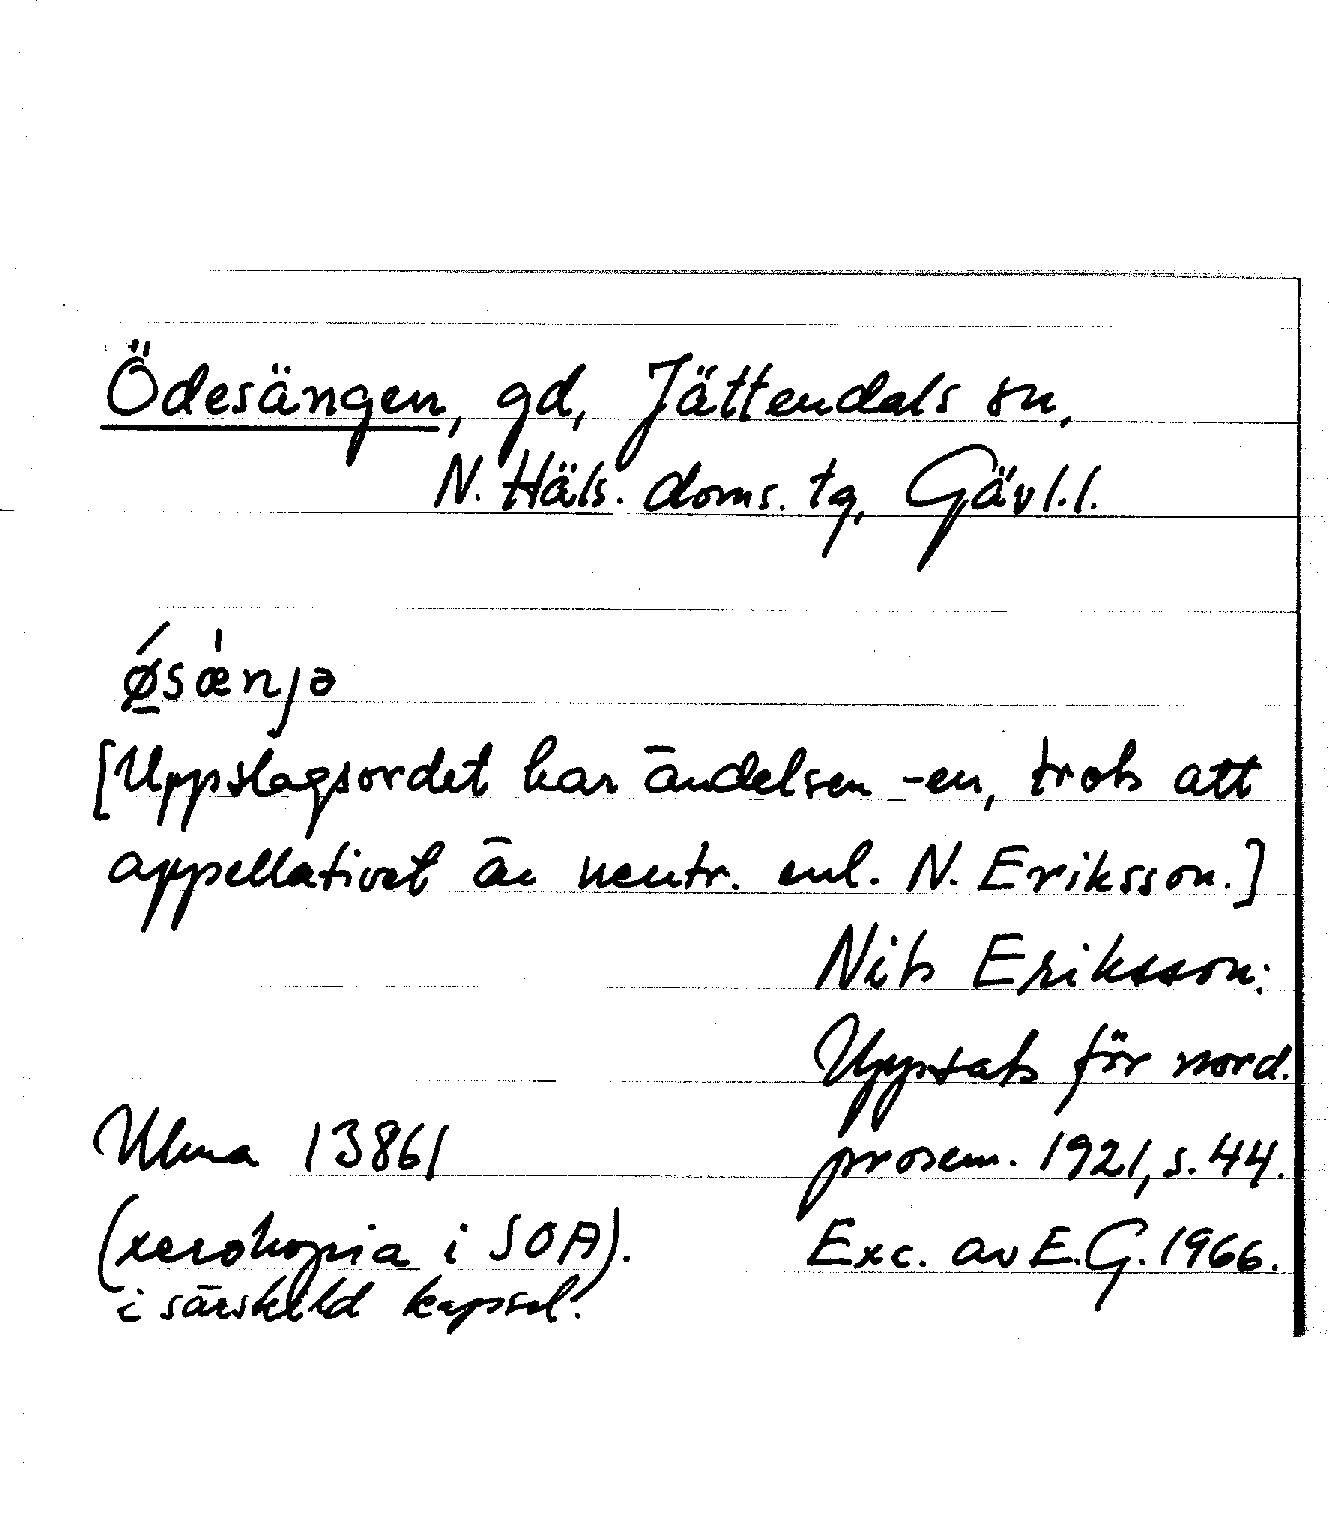 Ödesängen, gd, Jättendals sn,
N. Häls. doms. tg, Gävl.l.
ǿsænjə
[Uppslagsordet har ändelsen -en, trots att
appellativet är neutr. enl. N. Eriksson.]
Nils Eriksson:
Uppsats för nord.
Ulma 13861
prosem. 1921, s. 44.
(xerokopia i SOA).
Exc. av E.G. 1966.
i särskild kapsel.